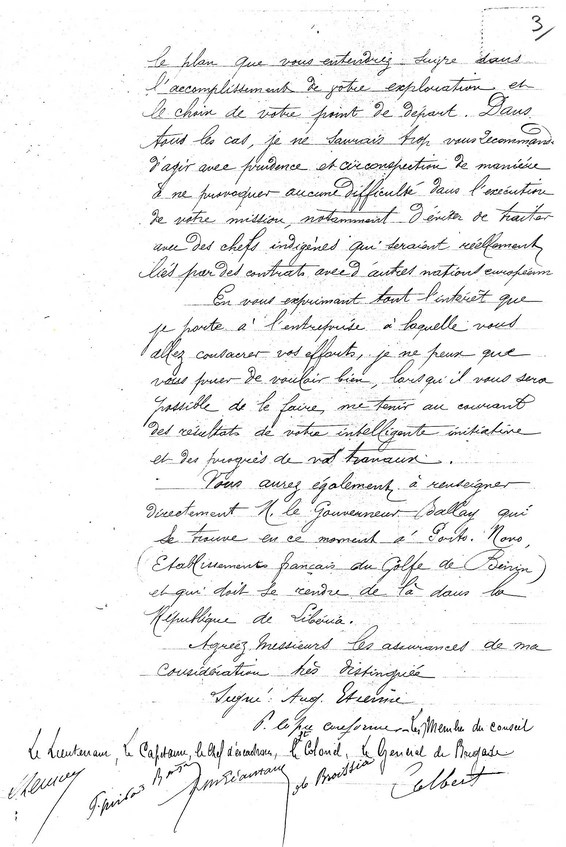 3/
le plan que vous entendrez suivre dans
l'accomplissement de votre exploration et
le choix de votre point de départ. Dans
tous les cas, je ne saurais trop vous recommander
d'agir avec prudence et circonspection de manière
à ne provoquer aucune difficulté dans l'exécution
de votre mission, notamment d'éviter de traiter
avec des chefs indigènes qui seraient réellement
liés par des contrats avec d'autres nations européennes
En vous exprimant tout l'intérêt que
je porte à l'entreprise à laquelle vous
allez consacrer vos efforts, je ne peux que
vous prier de vouloir bien, lorsqu'il vous sera
possible de le faire, me tenir au courant
des résultats de votre intelligente initiative
et des progrès de vos travaux.
Vous aurez également à renseigner
directement M. le Gouverneur Ballay qui
se trouve en ce moment à Porto-Novo,
(Etablissements français du Golfe de Bénin)
et qui doit se rendre de là dans la
République de Libéria.
Agréez Messieurs les assurances de ma
considération très distinguée
Signé: Aug. Etienne
conforme Les Membres du conseil
Le Lieutenant, Le Capitaine, le Chef d'escadron, Lt Colonel, le Général de Brigade
de Broissia